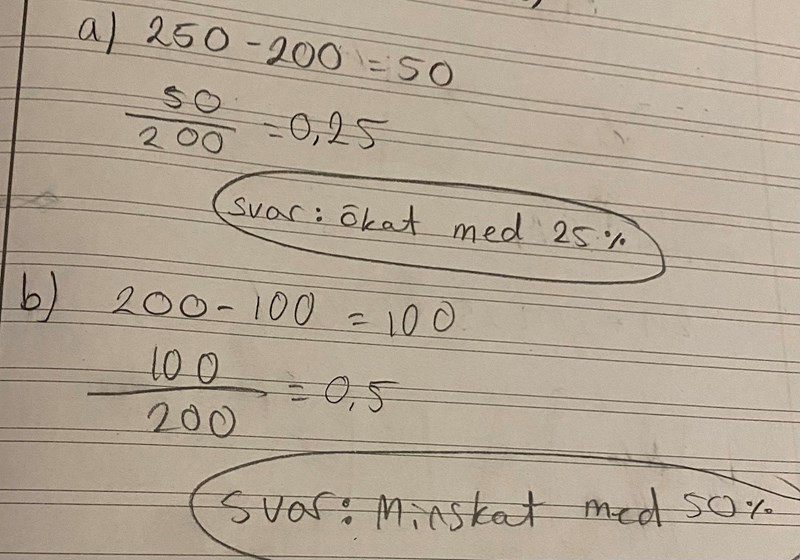 a) 250 - 200 = 50
50
200 = 0,25
svar: ökat med 25%
b) 200 - 100 = 100
100
200 = 0,5
svar: Minskat med 50%